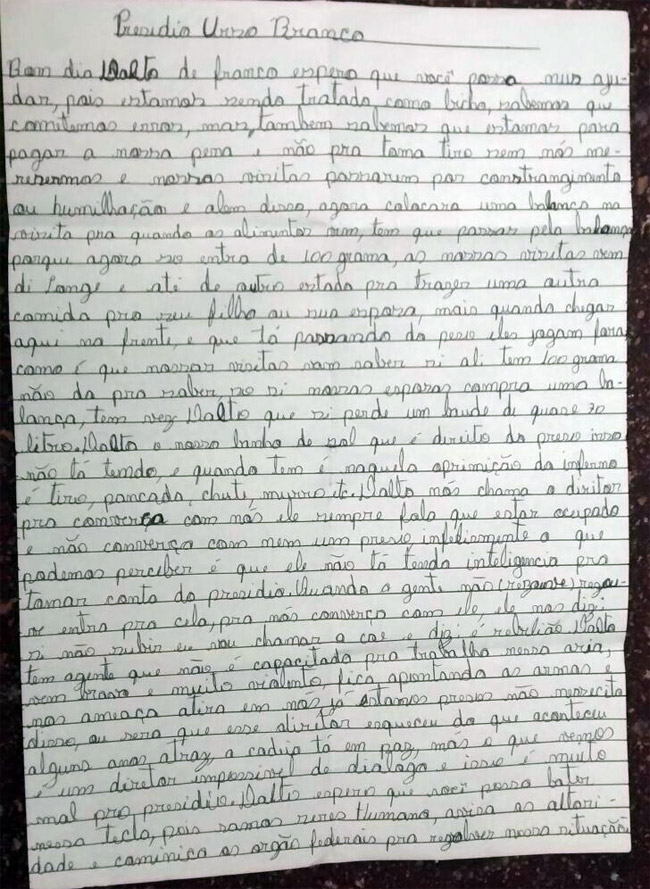 Presidio Urso Branco
Bom dia Dalto de franco espero que você possa nus aju-
dar, pois estamos sendo tratado, como bicho, sabemos que
comitemos erros, mas, tambem sabemos que estamos para
pagar a nossa pena e não pra toma tiro sem nós me-
resermos e nossas visitas passarem por constrangimento
ou humilhação e alem disso, agora colocara uma balança na
visita pra quando as alimentos vim, tem que passar pela balança
porque agora so entra de 100 grama, as nossas visitas vem
di longe e até de outro estado pra trazer uma outra
comida pro seu filho ou sua esposa, mais quando chegar
aqui na frente, e que tá passando do peso eles jogam fora,
como é que nossas visitas vam saber si ali tem 100 grama
não da pra saber, so si nossas esposas compra uma ba-
lança, tem vez Dalto que si perde um baude de quase 20
litro. Dalto o nosso banho de sol que é direito do preso isso
não tá tendo, e quando tem é naquela oprimição do inferno
é tiro, pancada, chute, murro etc. Dalto nós chama o diritor
pra converça com nós ele sempre fala que estar ocupado
e não converça com nem um preso infelismente o que
podemos perceber é que ele não tá tendo inteligencia pra
tomar conta do presidio. Quando a gente não (regouse) regou-
se entra pra cela, pra nós converça com ele, ele nos dizi
si não subir eu vou chamar o coe e dizi é rebelião Dalto
tem agente que não é capacitado pra trabalho nessa aria,
vem bravo e muito violento, fica apontando as armas e
nos ameaça atira em nós já estamos presos não nessecita
disso, ou sera que esse diritor esqueceu do que aconteceu
alguns anos atraz, a cadeja tá em paz, más o que vemos
é um diretor impossivel de dialogo e isso é muito
mal pro presidio. Dalto espero que você possa bater
nessa tecla, pois somos seres Humano, avisa as altori-
dade e caminica os orgão federais pra regolver nossa situação